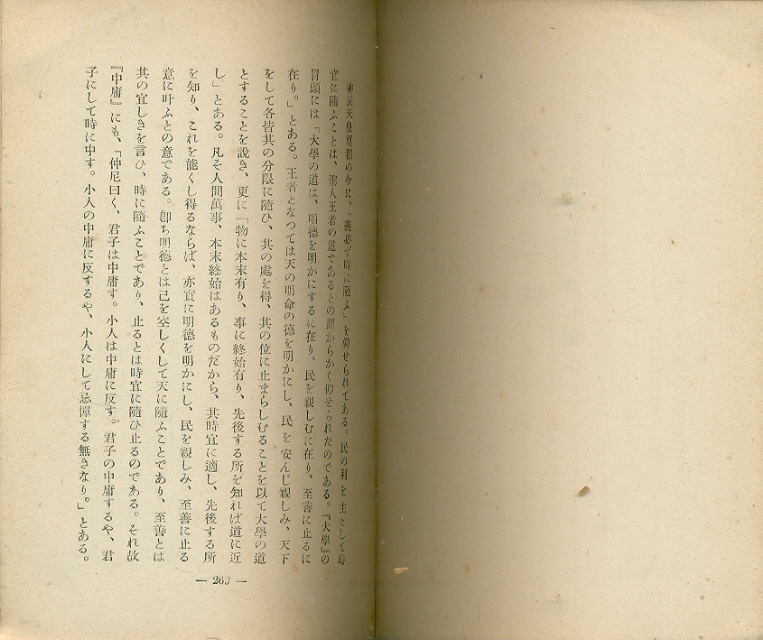 神武天皇奠都の令に、「義必ず時に隨ふ」を仰せられてある。民の利を主として時
宜に隨ふことは、聖人王者の道であるとの謂からかく仰せられたのである。『大學』の
冒頭には「大學の道は、明德を明かにするに在り、民を親しむに在り、至善に止るに
在り。」とある。王者となつては天の明命の德を明かにし、民を安んじ親しみ、天下
をして各皆其の分限に隨ひ、其の處を得、其の位に止まらしむることを以て大學の道
とすることを說き、更に「物に本末有り、事に終始有り、先後する所を知れば道に近
し」とある。凡そ人間萬事、本末終始はあるものだから、其時宜に適し、先後する所
を知り、これを能くし得るならば、亦宜に明德を明かにし、民を親しみ、至善に止る
意に叶ふとの意である。卽ち明德とは己を空しくして天に隨ふことであり、至善とは
其の宜しきを言ひ、時に隨ふことであり、止るとは時宜に隨ひ止るのである。それ故
『中庸』にも、「仲尼曰く、君子は中庸す。小人は中庸に反す。君子の中庸するや、君
子にして時に中す。小人の中庸に反するや、小人にして忌憚する無きなり。」とある。